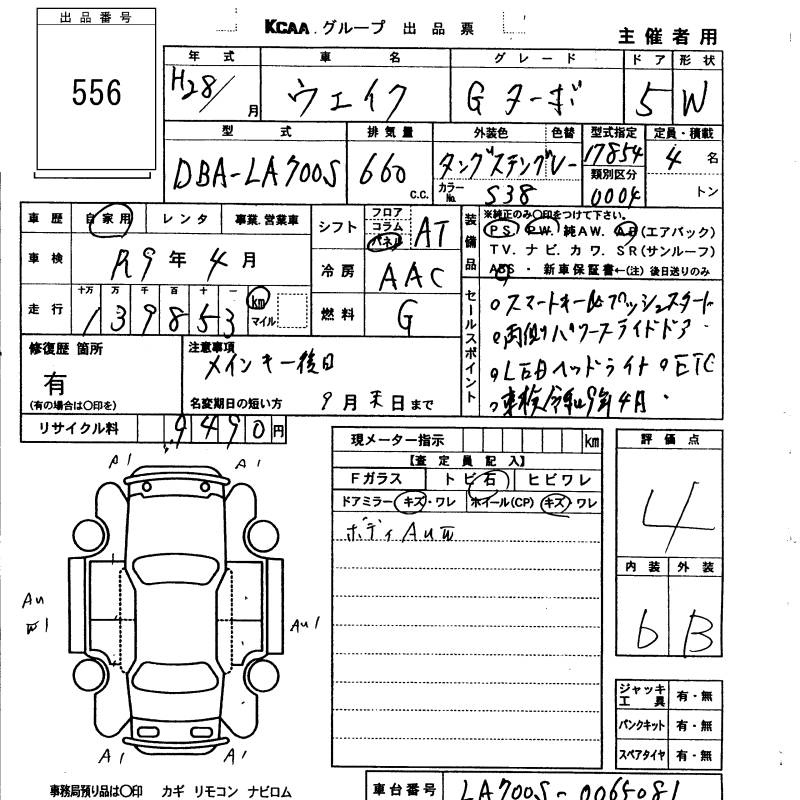 出品番号
556
KCAA.グループ 出品票
主催者用
年式 車名 グレード ドア 形状
H28/ 月 ウェイク Gターボ 5 W
型式 排気量 外装色 色替 型式指定 定員・積載
DBA-LA700S 660 c.c. タングステングレー 17854 4 名
カラーNo. S38 類別区分 0004 トン
車歴 自家用 レンタ 事業.営業車
車検 R9年4月
走行 十万 万 千 百 十 一
139853 km マイル
シフト フロア コラム パネル AT
冷房 AAC
燃料 G
装備品
※純正のみ〇印をつけて下さい。
PS. PW. 純AW. AB(エアバック)
TV. ナビ. カワ. SR(サンルーフ)
ABS ・ 新車保証書←(注) 後日送りのみ
セールスポイント
○スマートキー&プッシュスタート
○両側パワースライドドア.
○LEDヘッドライト ○ETC
○車検令和9年4月.
修復歴 箇所
有
(有の場合は〇印を)
注意事項
メインキー後日
名変期日の短い方 9月末日まで
リサイクル料 9490円
現メーター指示 km
【査定員記入】
Fガラス トビ石 ヒビワレ
ドアミラー キズ・ワレ ホイール(CP) キズ・ワレ
ボディAUⅡ
評価点
4
内装 外装
b B
A1 A1
AU
W1
AU1
A1 A1
ジャッキ工具 有・無
パンクキット 有・無
スペアタイヤ 有・無
事務局預り品は〇印 カギ リモコン ナビロム
車台番号 LA700S-0065081